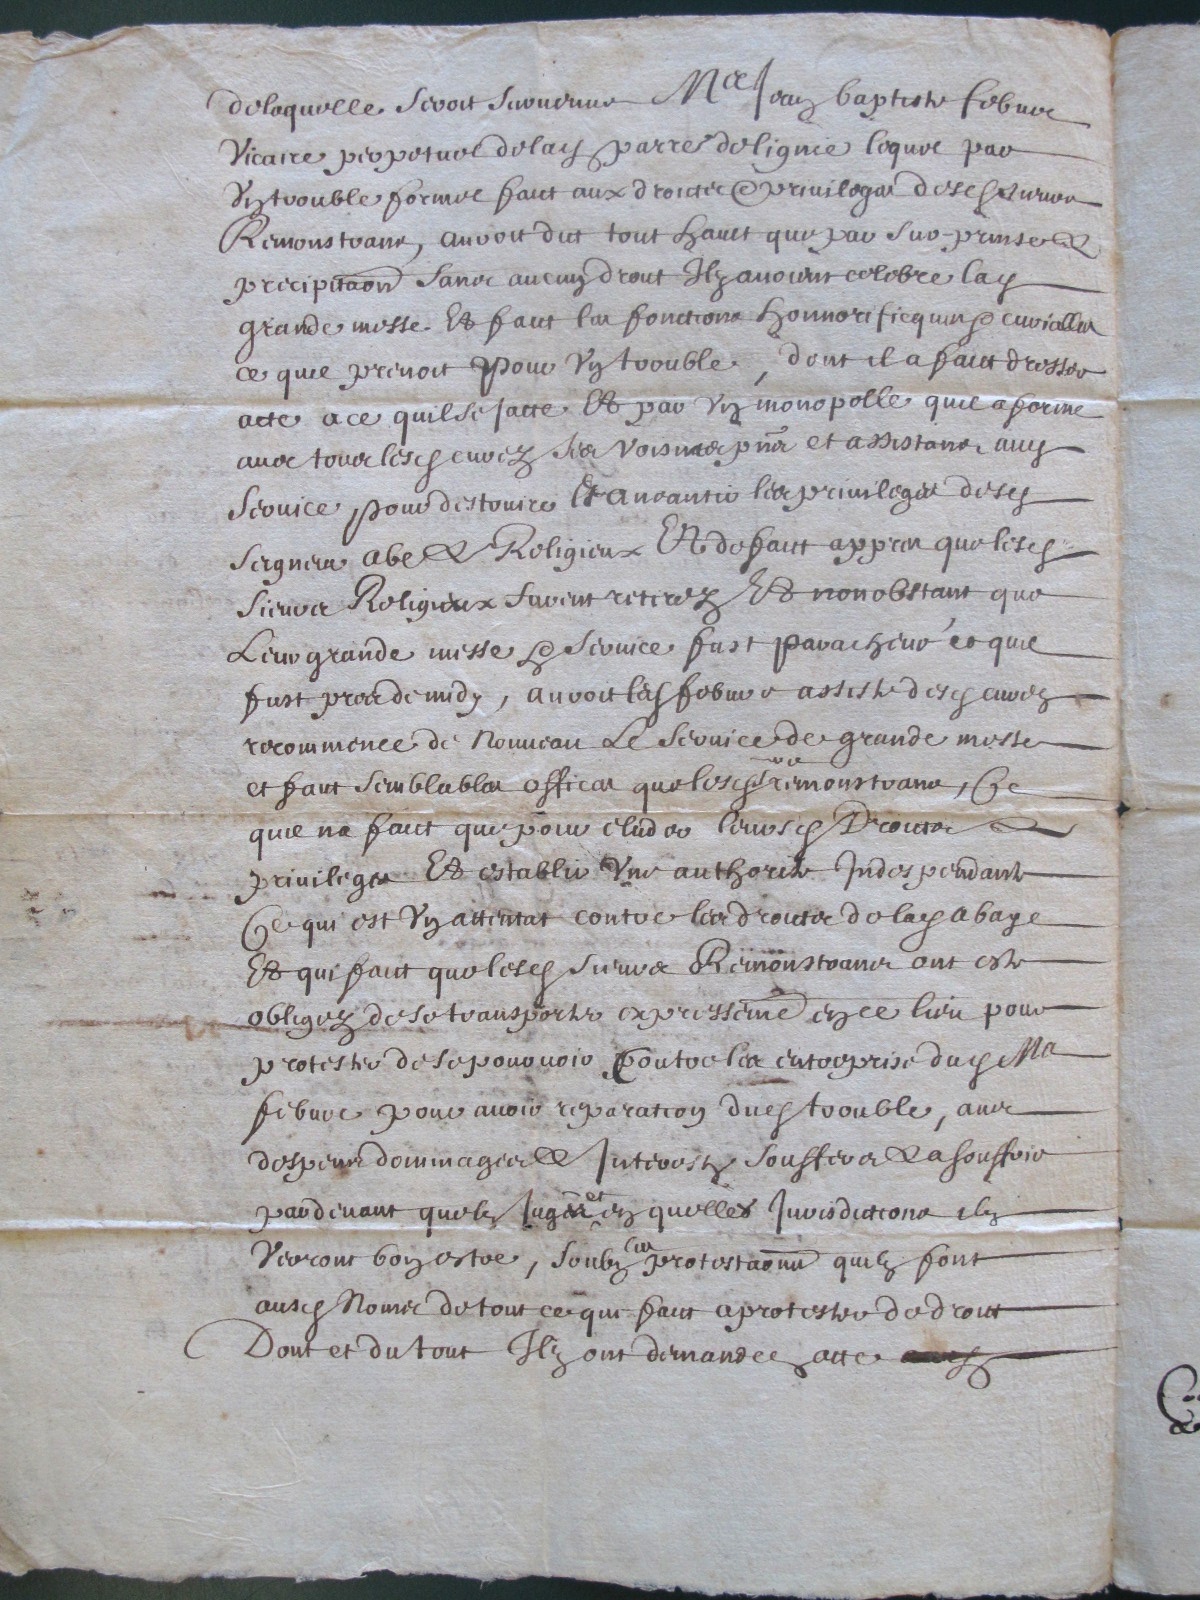 delaquelle seroit survenue Mre Jean baptiste febure
Vicaire perpetuel de lad parre de lignie lequel par
Un trouble formel faict aux droictz et privileges desd sieurs
Remonstrans, auroit dict tout hault que par surprinse et
precipitaon sans aucun droict Ilz avoient celebre lad
grande messe Et faict les fonctions honnorificques et curialles
ce quil prenoit pour Un trouble, dont il a faict dresser
acte a ce quil se jacte Et par Un monopolle quil a forme
avec tous lesd curez ses voisins pns et assistans aud
service pour destruire Et aneantir les privileges desd
seigneurs abe et Religieux Et de faict appres que lesd
sieurs Religieux furent retirez Et nonobstant que
Leur grande messe et service fust paracheve et quil
fust pres de midy, auroit led febure assiste desd curez
recommence de nouveau Le service de grande messe
et faict semblables offices que lesd srs remonstrans, Ce
quil na faict que pour eluder leursd Droictz et
privileges Et establir Une authorite Independante
Ce qui est Un attentat contre les droictz de lad abaye
Et qui faict que lesd sieurs Remonstrans ont este
obligez de se transporter expressemt en ce lieu pour
protester de se pourvoir Contre les entreprise dud Me
febure pour avoir reparation dud trouble, avec
despens dommages et Interestz soufferts et a souffrir
pardevant quelz Juges et en quelles Jurisdictions ilz
verront bon estre, soubz les protestaons quilz font
ausd noms de tout ce qui faict a protester de droict
Dont et du tout Ilz ont demandez acte